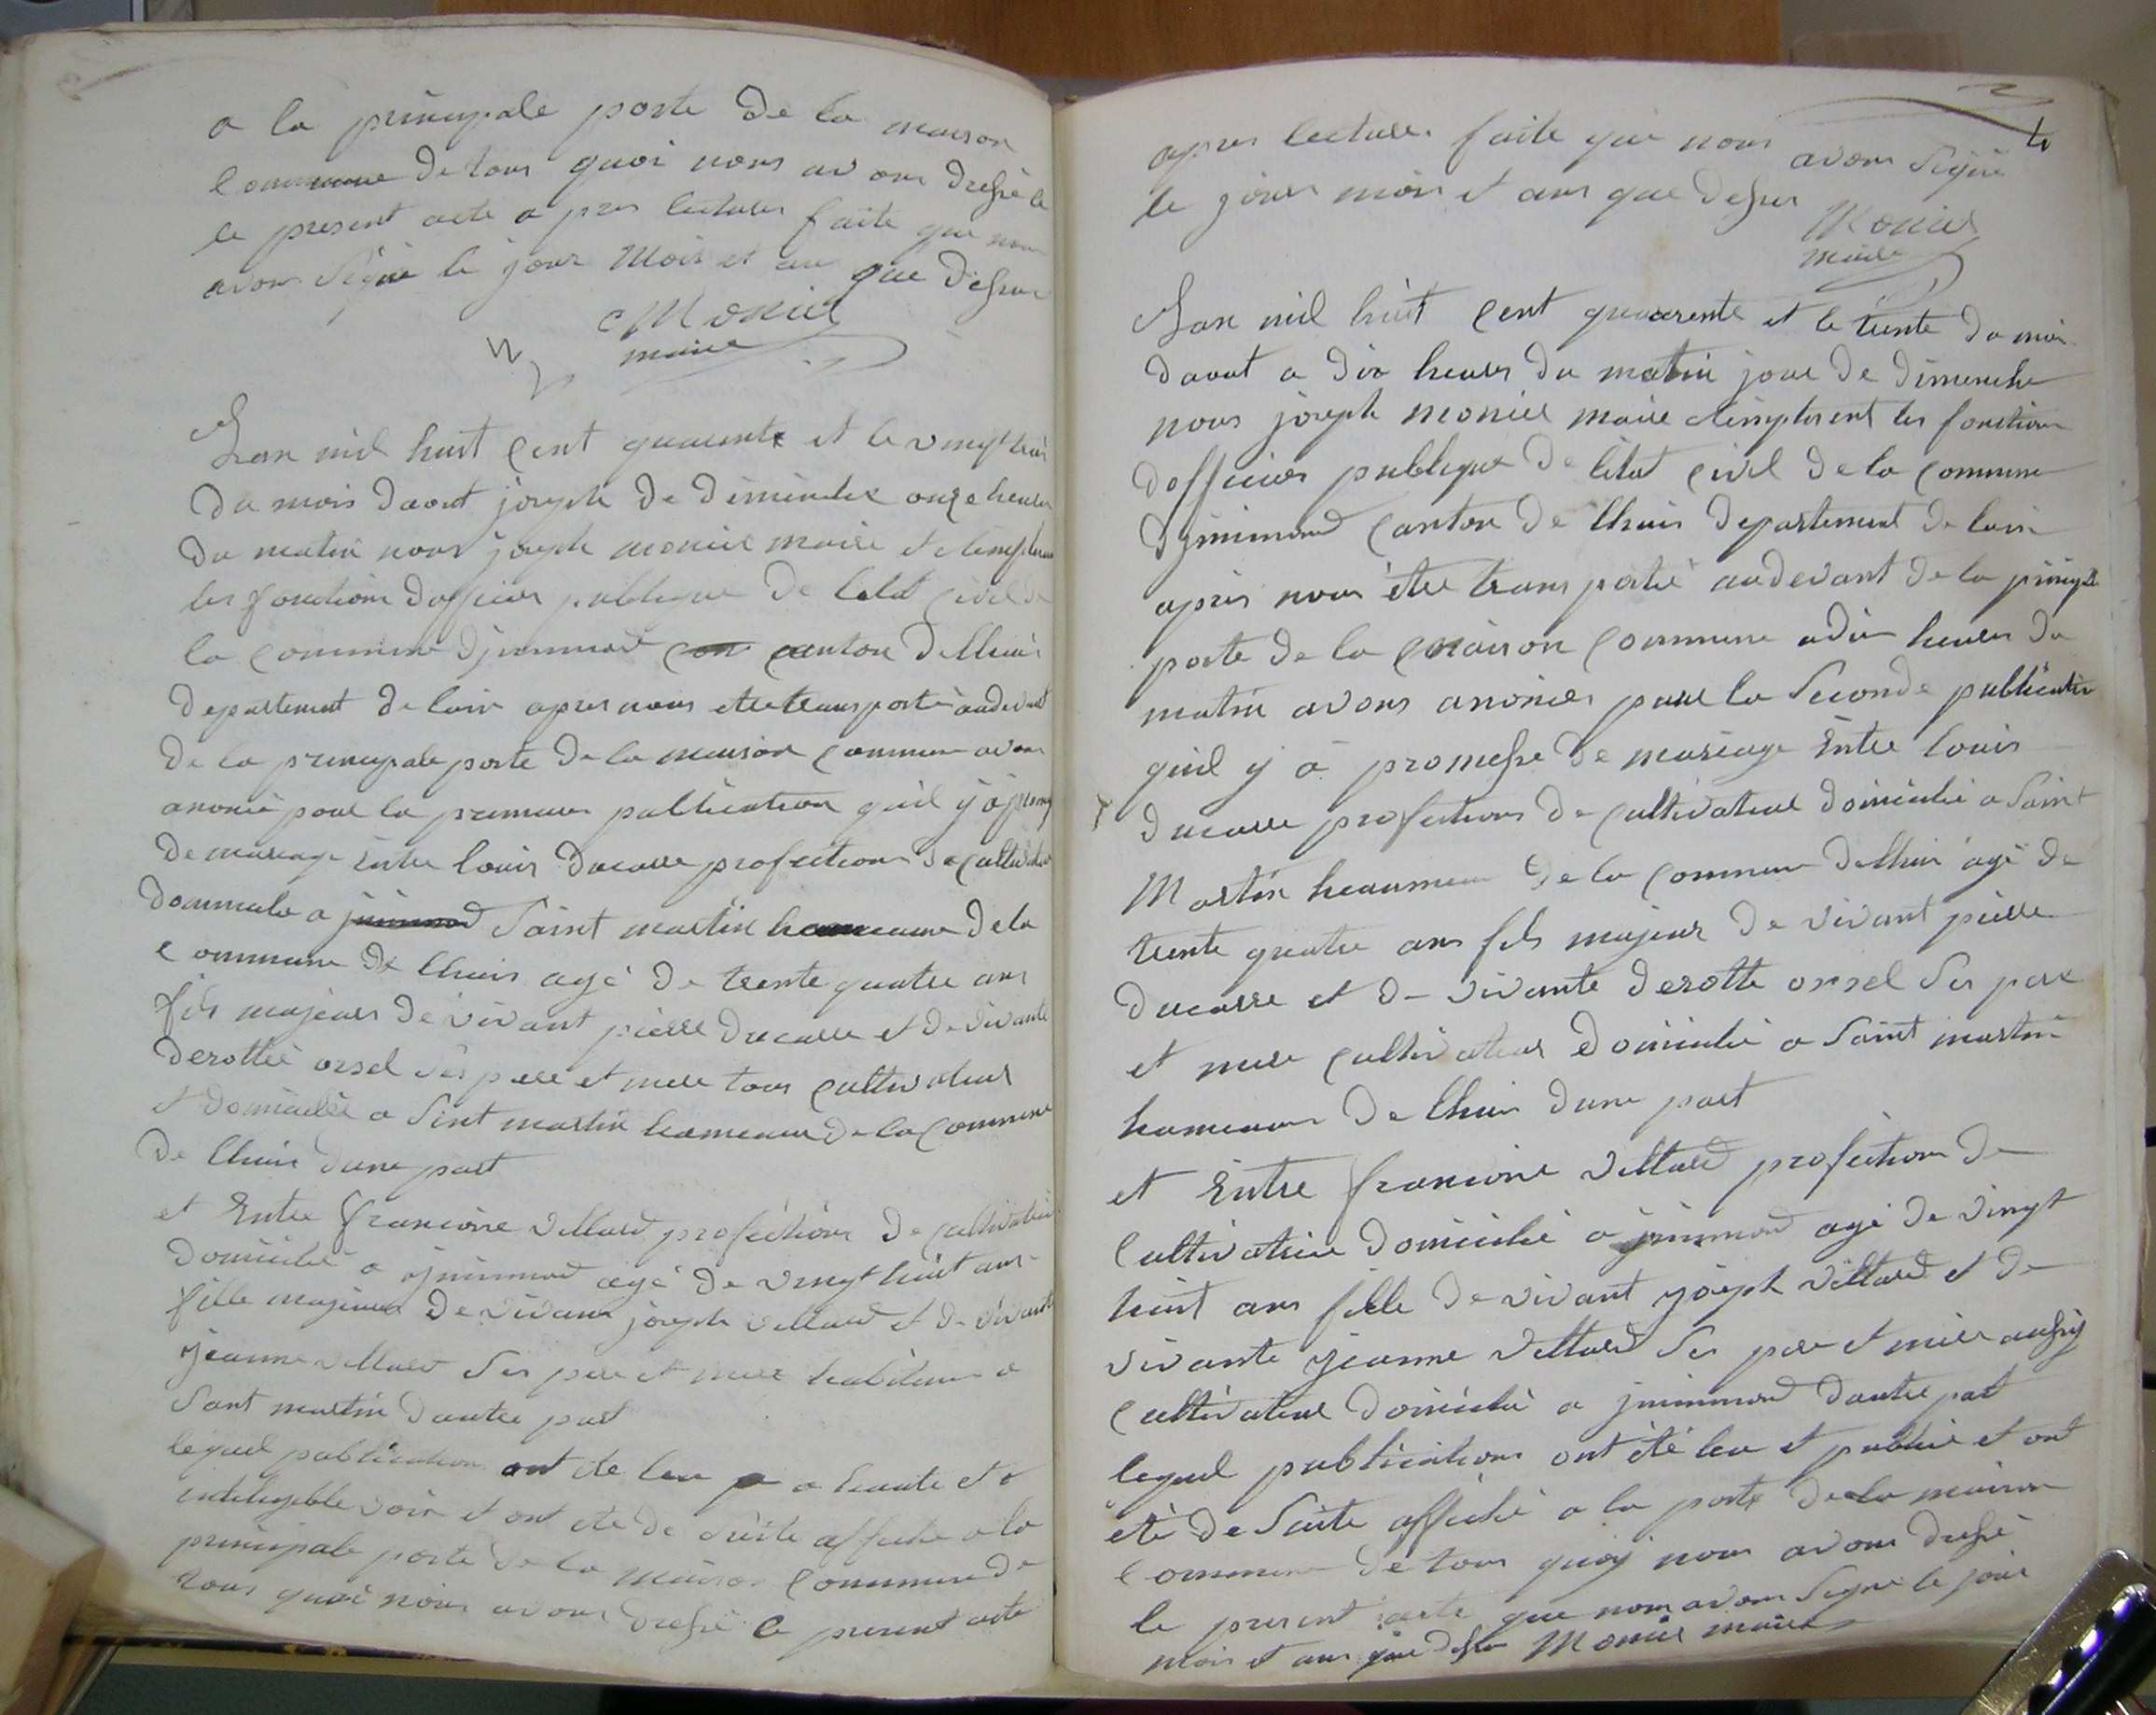 a la principale porte de la maison
commune de tous quoi nous avons dressé le
le present acte apres lecture faite que nous
avons signé le jour mois et an que dessus
Monier
maire
Lan mil huit cent quarente et le vingt trois
du mois daout joseph de dimenche onze heures
du matin nous joseph monier maire et
les fonctions dofficier publique de letat civil de
la commune djnnimond con canton de lhuis
departement de lain apres nous etre transporté audevant
de la principale porte de la maison commune avons
anoncé pour la premiere publication quil y a
de mariage Entre louis ducarre profection de
a jnnimond Saint martin hameaux de la
commune de lhuis agé de trente quatre ans
fils majeur de vivant pierre ducarre et de vivante
derotteé orsel ses pere et mere tous cultivateur
et domicilié a Sint martin hameaux de la commune
de lhuis dune part
et Entre francoise villard profection de
domicilié a jnnimond agé de vingt huit ans
fille majeur de vivant joseph villard et de vivante
jeanne villard ses pere et mere a
Sant martin dautre part
lequel publication ont ete leu a haute et
voix et ont ete de suite affiché a la
principale porte de la maison commune de
tous quoi nous avons dressé le present acte
apres lecture faite que nous avons signé
le jour mois et ans que dessus
Monier
maire
Lan mil huit cent quarente et le trente du mois
daout a dix heures du matin jour de dimenche
nous joseph monier maire les fonctions
dofficier publique de letat civil de la commune
djnnimond canton de lhuis departement de lain
apres nous etre transporté audevant de la
porte de la maison commune a dix heures du
matin avons anoncer pour la seconde publication
quil y a promesse de mariage Entre louis
ducarre profections de cultivateur domicilié a Saint
Martin hameau de la commune de lhuis agé de
trente quatre ans fils majeur de vivant pierre
ducarre et de vivante derotte orsel ses pere
et mere cultivateur domicilié a Saint martin
hameaux de lhuis dune part
et Entre francoise villard profection de
cultivatrice domicilié a jnnimond agé de vingt
huit ans fille de vivant joseph villard et de
vivante jeanne villard ses pere et mere aussy
cultivateur domicilié a jnnimond dautre part
lequel publications ont été leu et publié et ont
eté de suite affiché a la porte de la maison
commune de tous quoy nous avons dressé
le present acte que nous avons signé le jour
mois et ans que dessus Monier maire